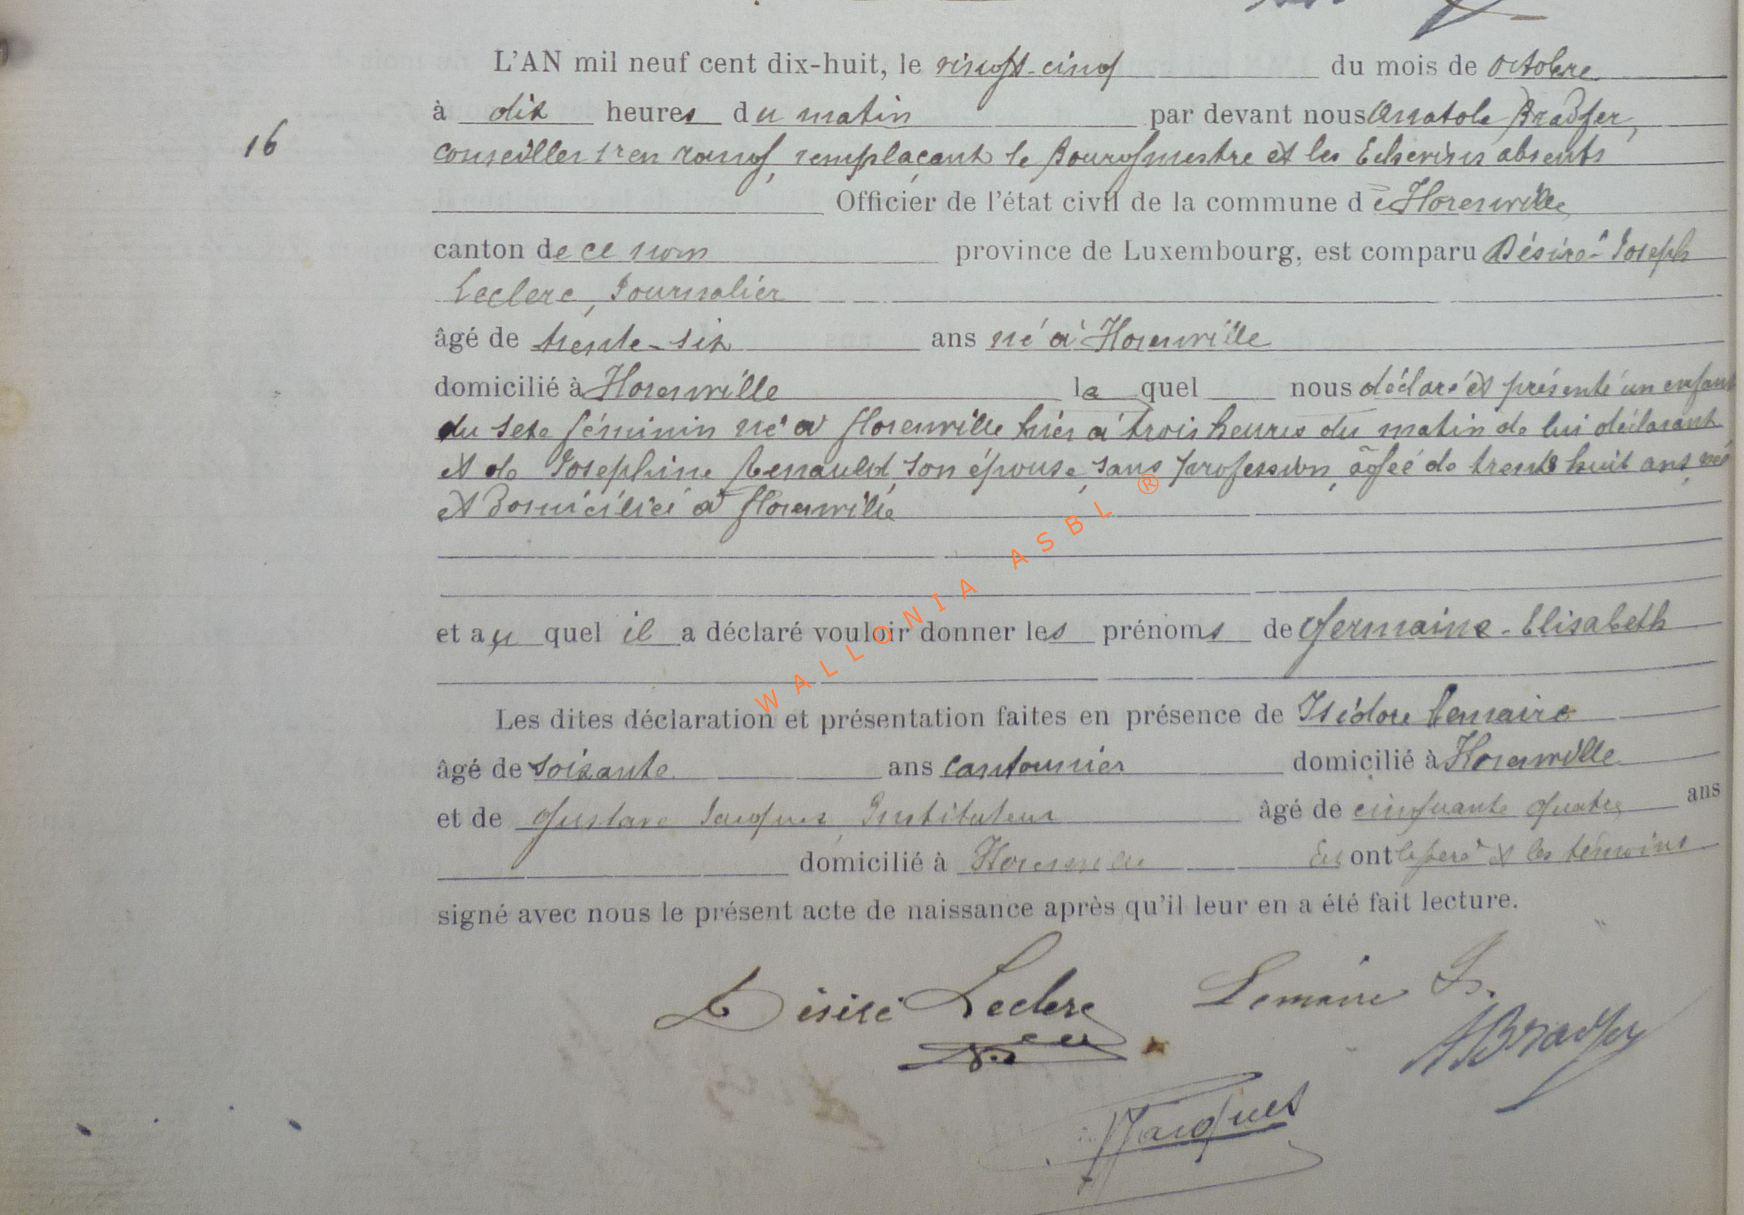 L'AN mil neuf cent dix-huit, le vingt-cinq du mois de Octobre
à dix heures du matin par devant nous Anatole Bradfer,
16
conseiller 1er en rang, remplaçant le Bourgmestre et les Echevins absents
Officier de l'état civil de la commune de Florenville
canton de ce nom province de Luxembourg, est comparu Désiré Joseph
Leclerc, Journalier
âgé de trente-six ans né à Florenville
domicilié à Florenville lequel nous déclaré et présenté un enfant
du sexe féminin né à Florenville hier à trois heures du matin de lui déclarant
et de Joséphine Renauld, son épouse, sans profession, âgée de trente huit ans, née
et domiciliée à Florenville
et auquel il a déclaré vouloir donner les prénoms de Germaine-Elisabeth
Les dites déclaration et présentation faites en présence de Isidore Lemaire
âgé de soixante ans cantonnier domicilié à Florenville
et de Gustave Jacques, Instituteur âgé de cinquante quatre ans
domicilié à Florenville Et ont le père et les témoins
signé avec nous le présent acte de naissance après qu'il leur en a été fait lecture.
Désiré Leclerc Lemaire Is.
ABradfer
Jacques
WALLONIA ASBL ®